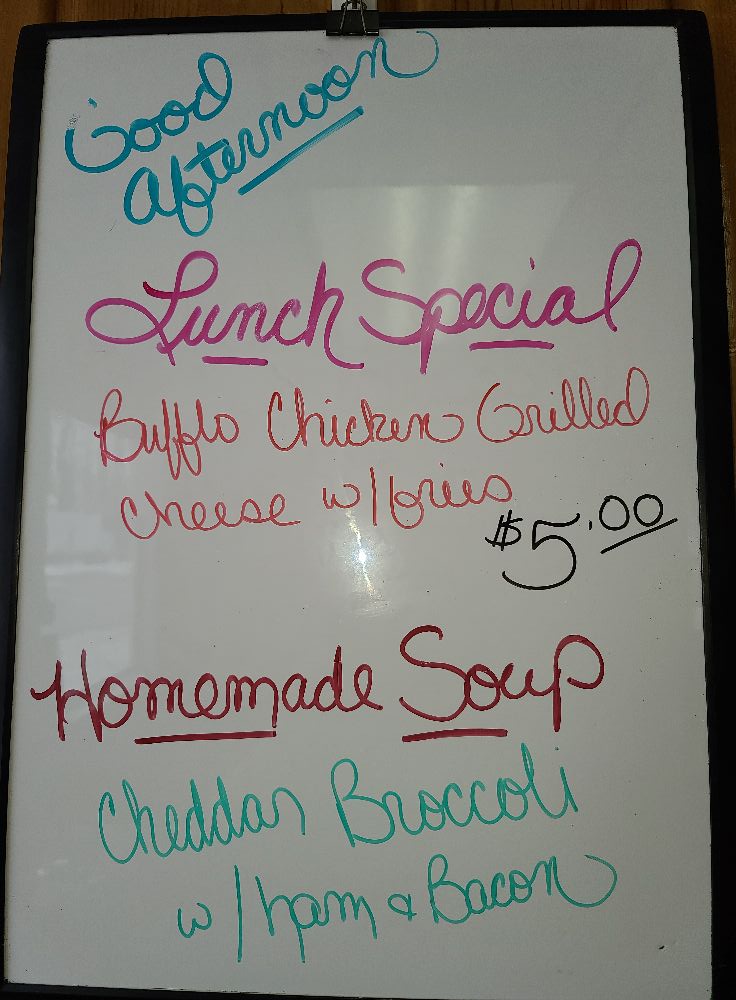 Good
Afternoon
Lunch Special
Bufflo Chicken Grilled
Cheese w/fries
$5.00
Homemade Soup
Cheddar Broccoli
w/ham & Bacon